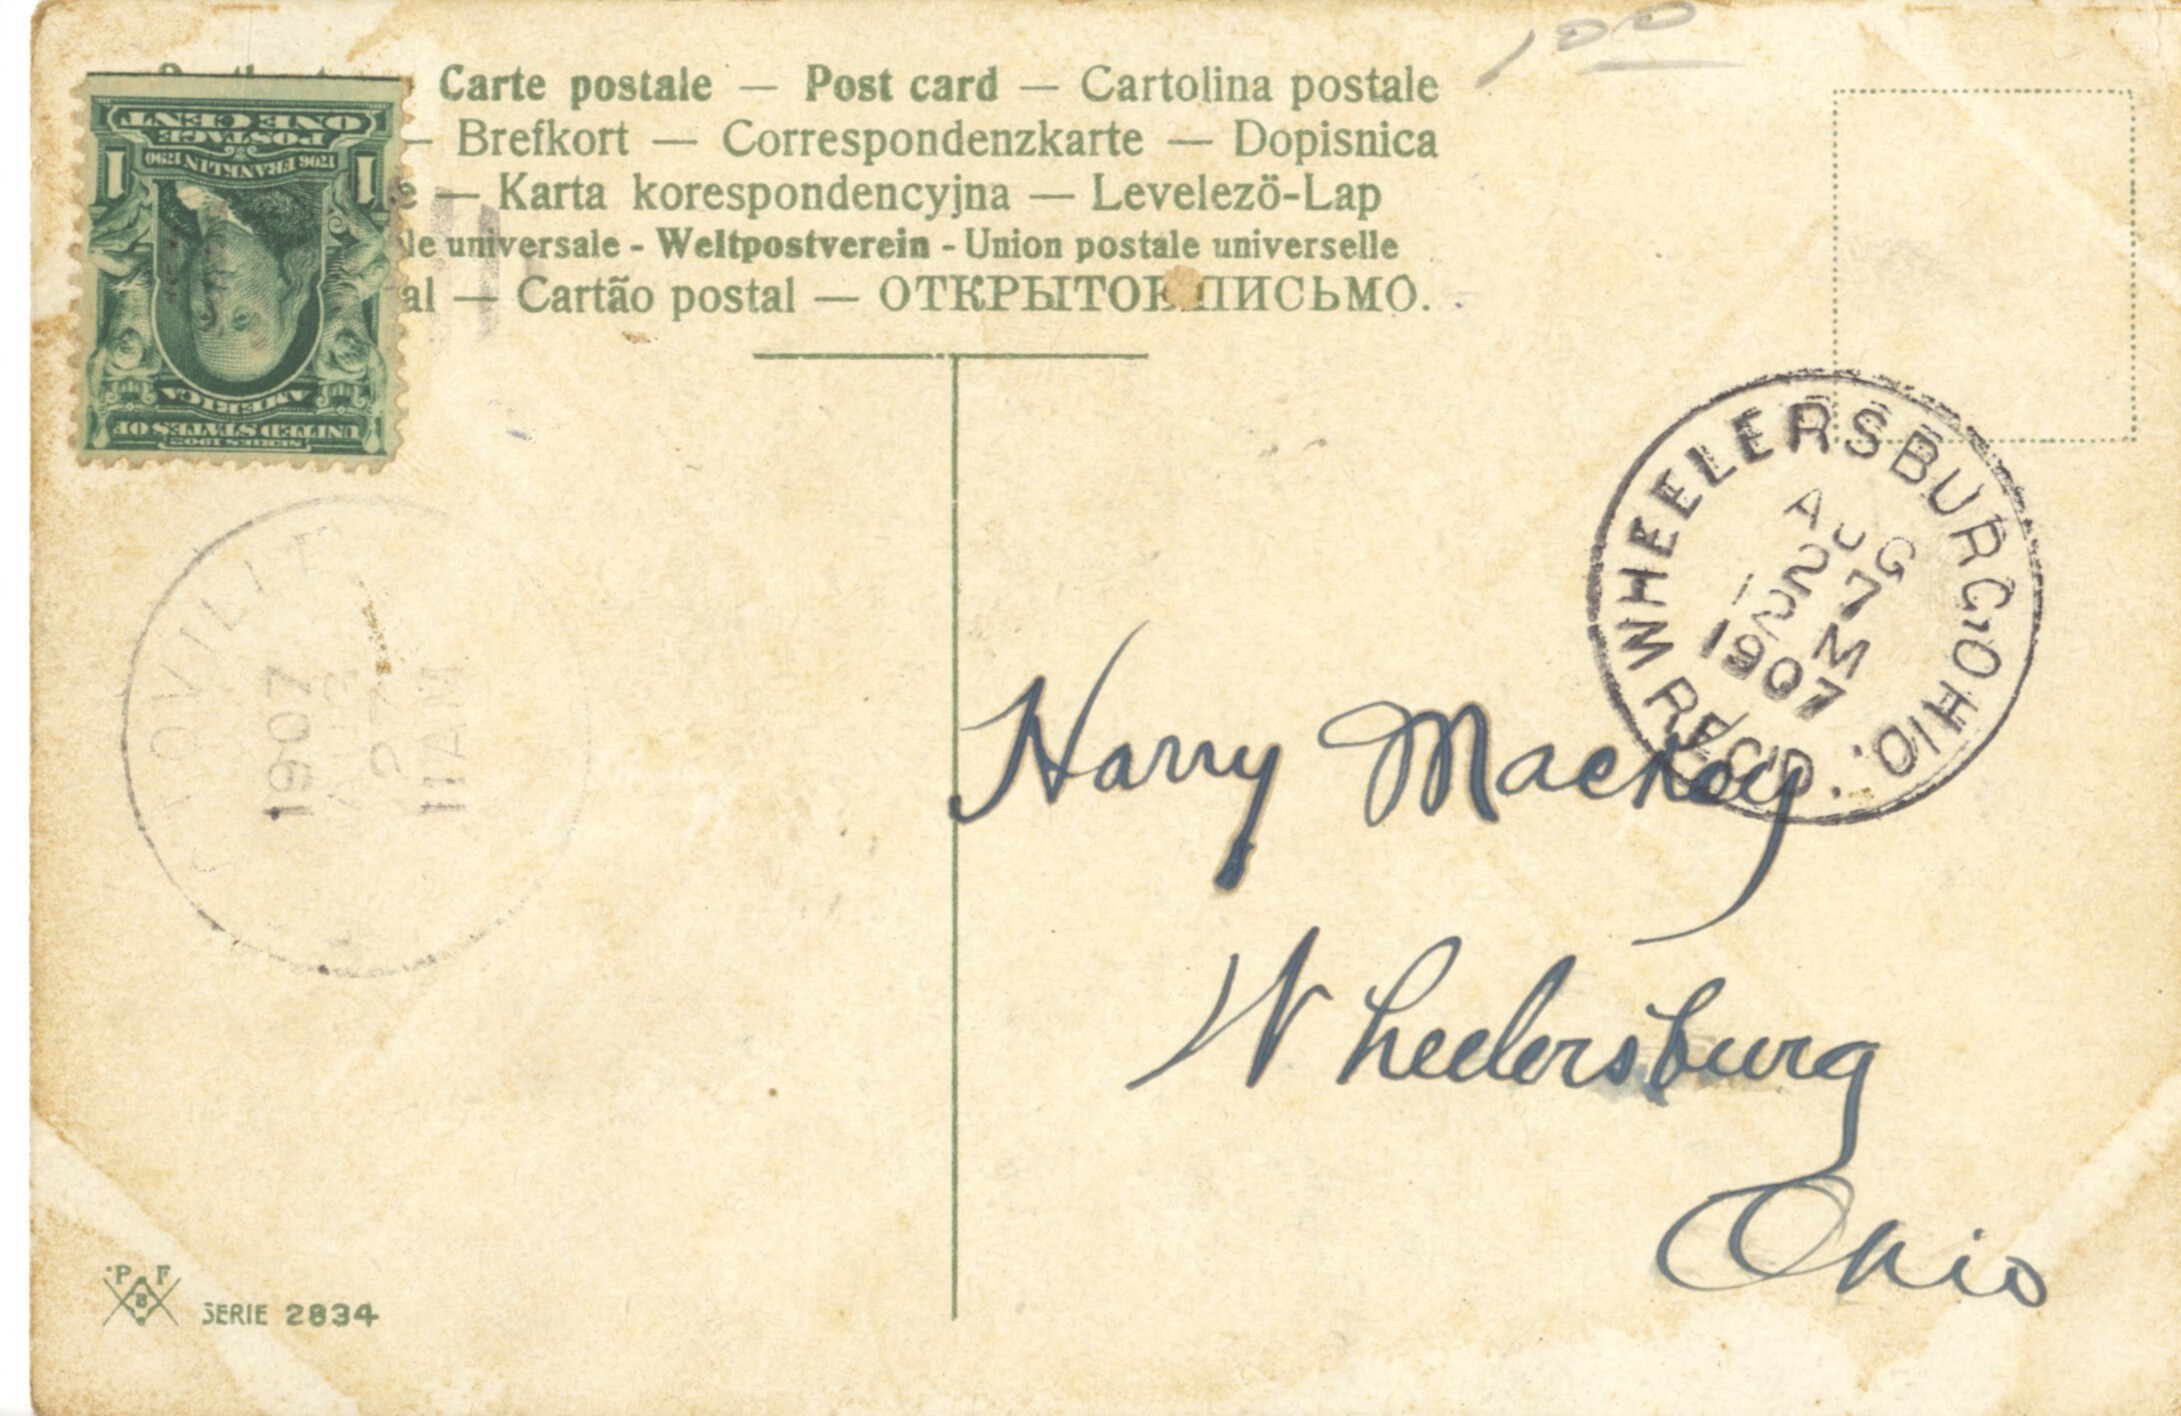 100
Carte postale — Post card — Cartolina postale
— Brefkort — Correspondenzkarte — Dopisnica
e — Karta korespondencyjna — Levelezö-Lap
le universale - Weltpostverein - Union postale universelle
al — Cartão postal — ОТКРЫТОЕ ПИСЬМО.
ONE CENT
POSTAGE
1706 FRANKLIN 1790
1 1
AMERICA
UNITED STATES OF
SERIES 1902
WHEELERSBURG, OHIO.
AUG
27
12 M
1907
REC'D.
1907
AUG
27
11 AM
Harry Mackoy
Wheelersburg
Ohio
P F
B
SERIE 2834